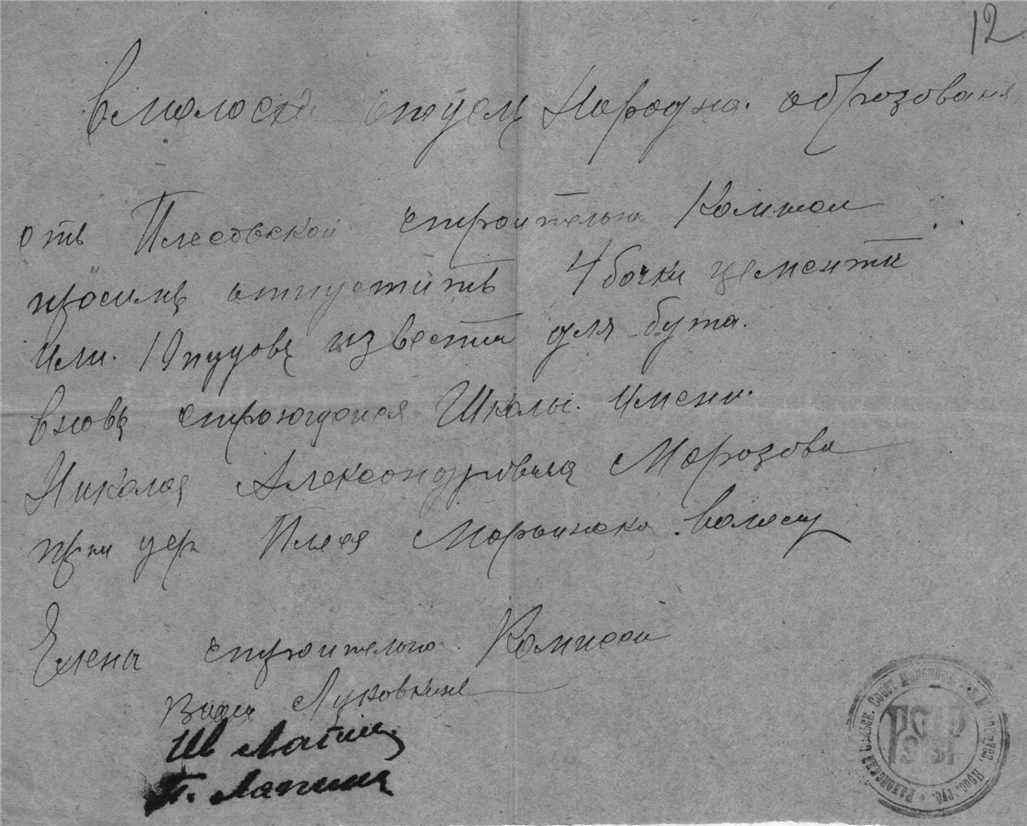 12
Вмолоской отдел Народна. образованя
отъ Плесовской строительна Комисои
просимъ отпуститъ 4 бочки цементи
или. 19 пудовъ известки для бута.
вновъ строющеися Школы. имени.
Николоя Александровича Морозова
при дер Плеся Марьинско. волост
Члена строительно. Комисои
Луковкине
Лапин
П. Лапина
РСФСР